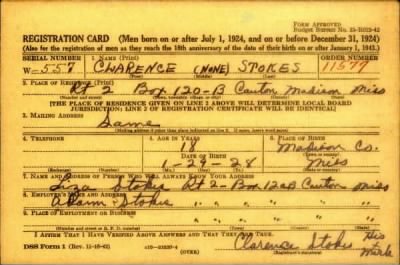 FORM APPROVED
REGISTRATION CARD (Men born on or after July 1, 1924, and on or before December 31, 1924)
(Also for the registration of men as they reach the 18th anniversary of the date of their birth on or after January 1, 1943.)
SERIAL NUMBER 1. NAME (Print) ORDER NUMBER
W-557 CLARENCE (NONE) STOKES 11577
(First) (Middle) (Last)
2. PLACE OF RESIDENCE (Print)
Rt 2 Box 120-B Canton Madison Miss
[THE PLACE OF RESIDENCE GIVEN ON LINE 2 ABOVE WILL DETERMINE LOCAL BOARD
JURISDICTION; LINE 2 OF REGISTRATION CERTIFICATE WILL BE IDENTICAL]
3. MAILING ADDRESS
Same
4. TELEPHONE 5. AGE IN YEARS 6. PLACE OF BIRTH
18 Madison Co.
DATE OF BIRTH
1-29-28 Miss
7. NAME AND ADDRESS OF PERSON WHO WILL ALWAYS KNOW YOUR ADDRESS
Stokes Rt 2- Box 120B Canton Miss
8. EMPLOYER'S NAME AND ADDRESS
Adam Stokes " " " "
9. PLACE OF EMPLOYMENT OR BUSINESS
" " " "
I AFFIRM THAT I HAVE VERIFIED ABOVE ANSWERS AND THAT THEY ARE TRUE.
DSS Form 1 (OVER) Clarence Stokes His
Mark